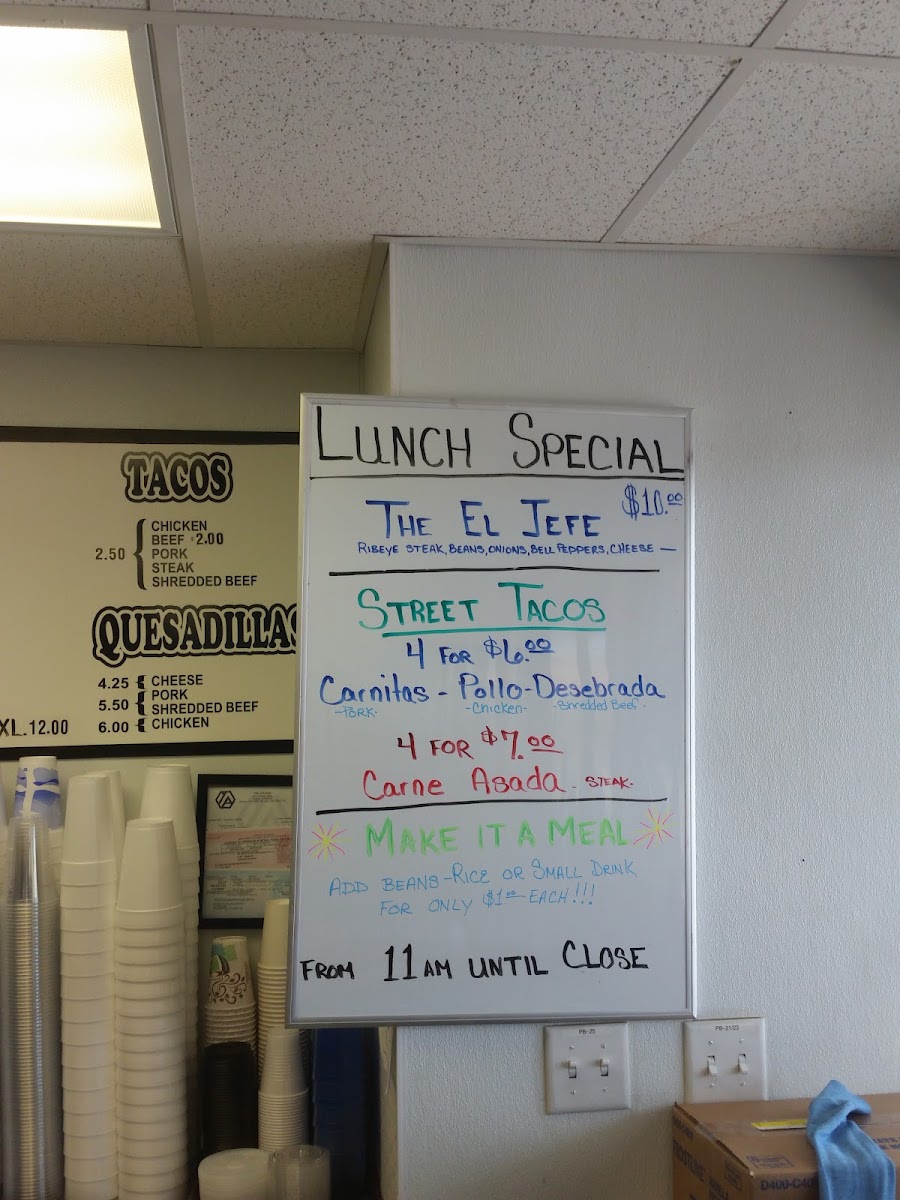 TACOS
CHICKEN
BEEF 2.00
2.50
PORK
STEAK
SHREDDED BEEF
QUESADILLAS
4.25 CHEESE
PORK
5.50
SHREDDED BEEF
6.00 CHICKEN
XL. 12.00
LUNCH SPECIAL
THE EL JEFE $10.00
RIBEYE STEAK, BEANS, ONIONS, BELL PEPPERS, CHEESE —
STREET TACOS
4 FOR $6.00
Carnitas - Pollo - Desebrada
-PORK- -Chicken- -Shredded Beef-
4 FOR $7.00
Carne Asada - STEAK-
MAKE IT A MEAL
ADD BEANS-RICE OR SMALL DRINK
FOR ONLY $1.00 EACH!!!
FROM 11AM UNTIL CLOSE
PB-25
PB-21/23